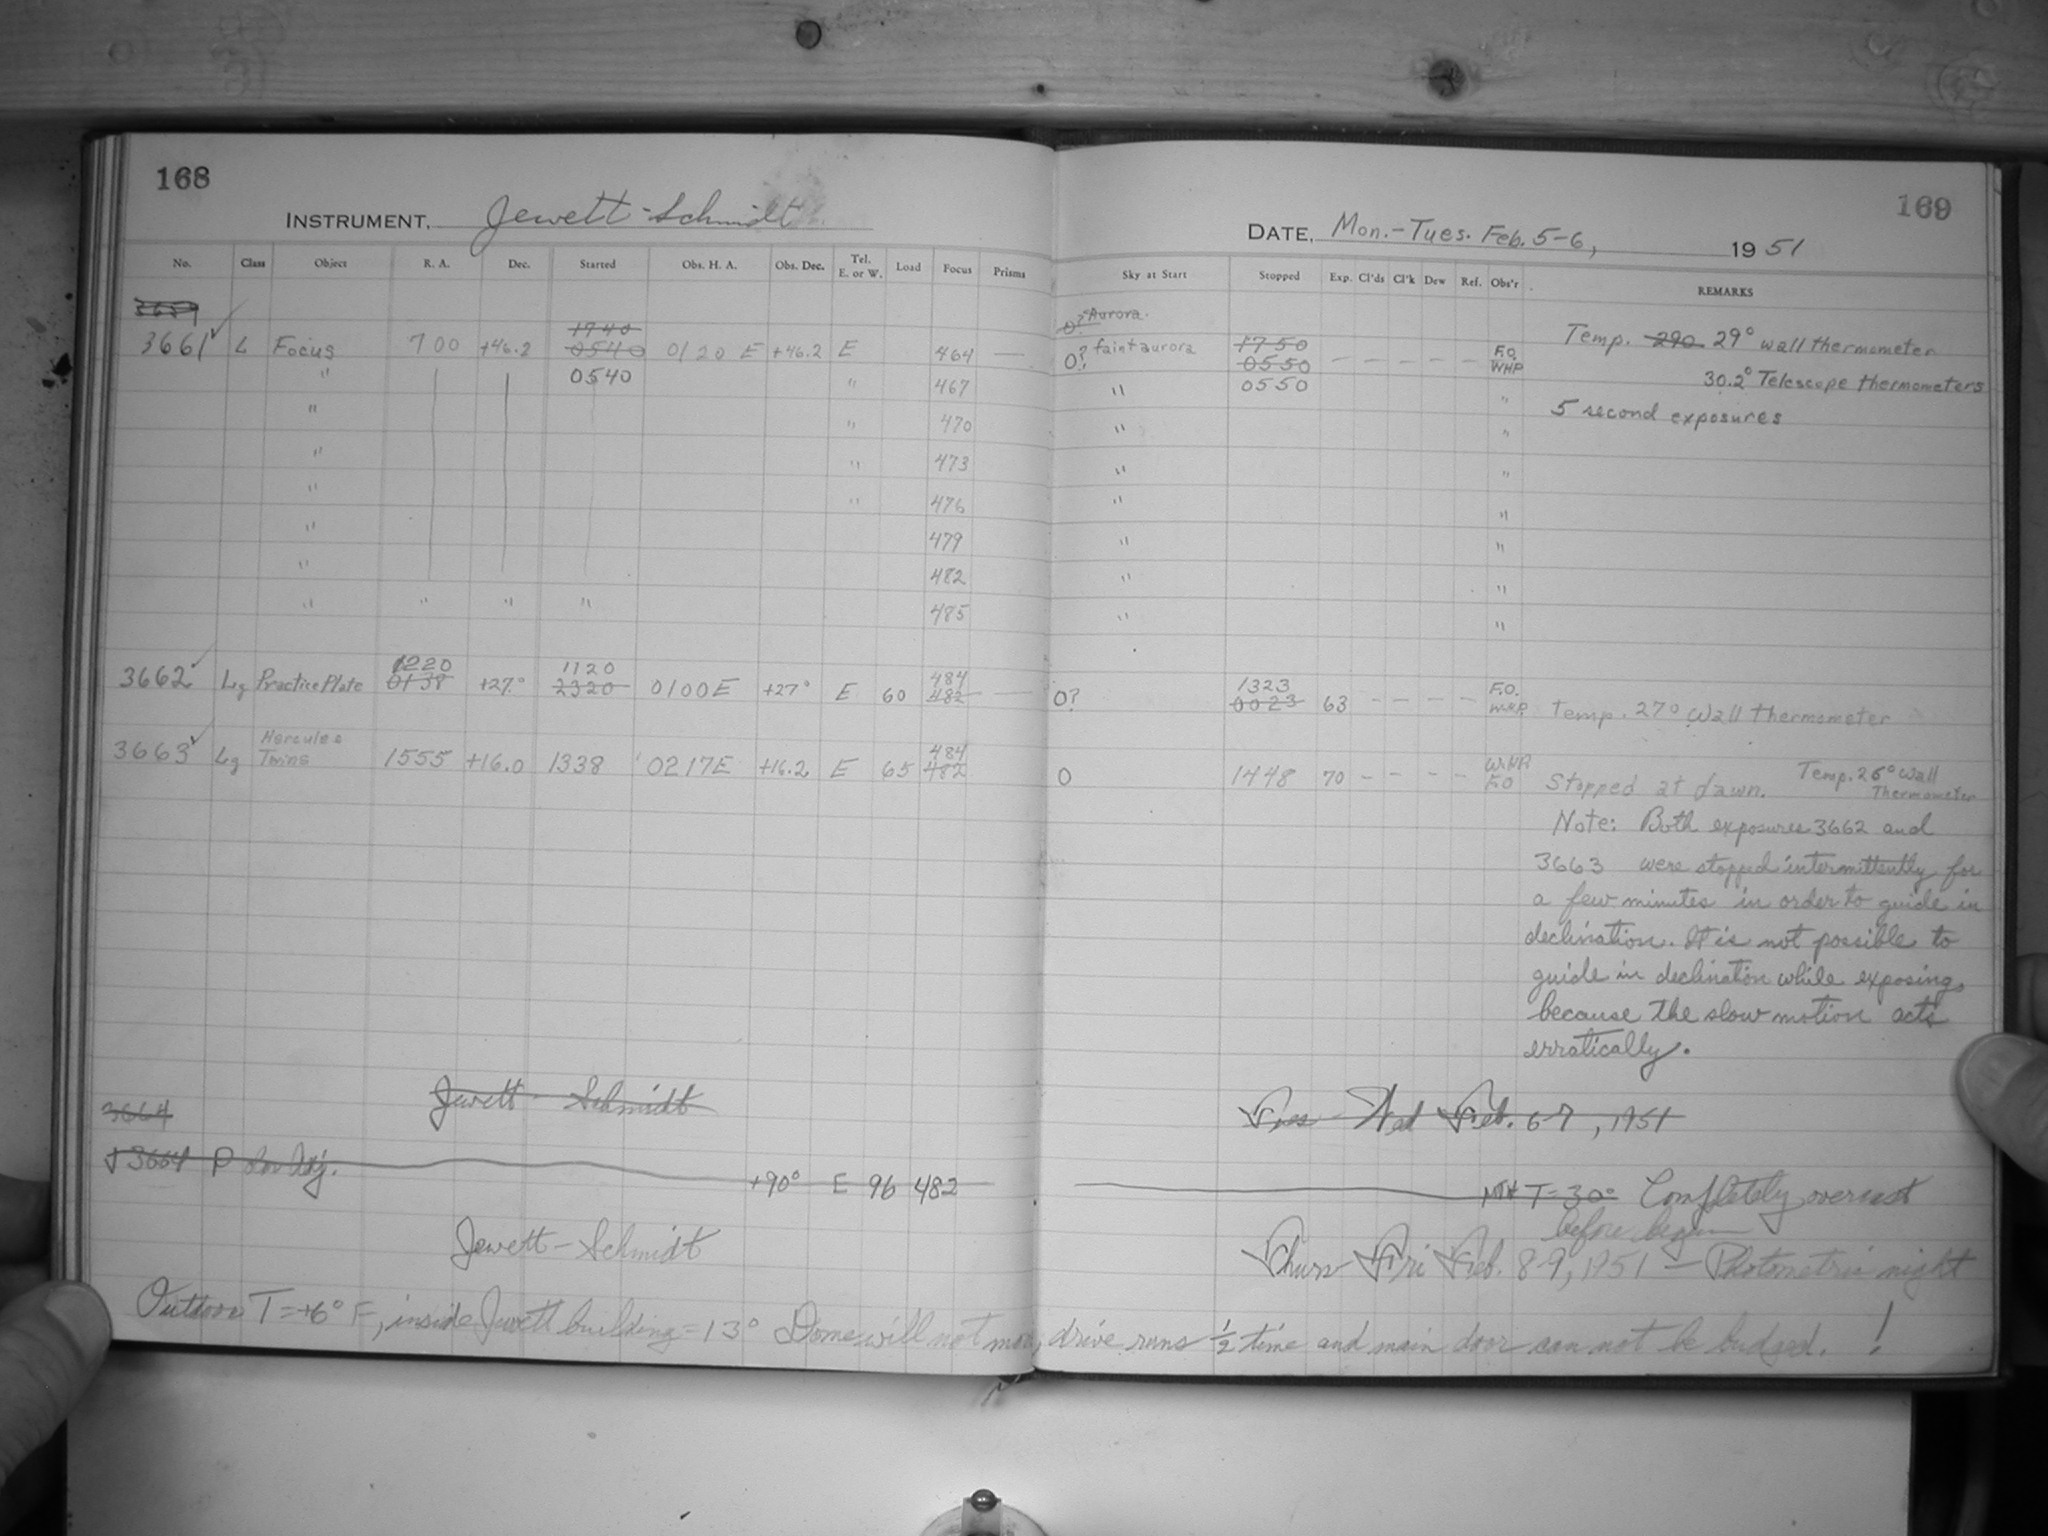 168
INSTRUMENT, Jewett-Schmidt
No. Class Object R. A. Dec. Started Obs. H. A. Obs. Dec. Tel. E. or W. Load Focus Prisms
3659
1740
3661 L Focus 700 +46.2 0540 0120 E +46.2 E 464 —
" 0540 " 467
" " 470
" " 473
" " 476
" 479
" 482
" " " " 485
1220 1120 484
3662 Lg Practice Plate 0138 +27° 2320 0100E +27° E 60 482
Hercules 484
3663 Lg Twins 1555 +16.0 1338 0217E +16.2 E 65 482
Jewett-Schmidt
3664
3664 P +90° E 96 482
Jewett-Schmidt
169
DATE, Mon.-Tues. Feb. 5-6, 1951
Sky at Start Stopped Exp. Cl'ds Cl'k Dew Ref. Obs'r REMARKS
0? Aurora.
0? faint aurora 1750 0550 — — — — — F.O. WHP Temp. 290 29° wall thermometer
" 0550 " 30.2° Telescope thermometers
" " 5 second exposures
" "
" "
" "
" "
" "
0? 1323 0023 63 - - - - F.O. W.H.P. Temp. 27° Wall thermometer
0 1448 70 - - - - W.H.P. F.O Stopped at dawn. Temp. 26° Wall Thermometer
Note: Both exposures 3662 and
3663 were stopped intermittently for
a few minutes in order to guide in
declination. It is not possible to
guide in declination while exposing,
because the slow motion acts
erratically.
Tues-Wed Feb. 6-7, 1951
T=30° Completely overcast
before begun
Thurs-Fri Feb. 8-9, 1951 — Photometric night
Outdoor T=+6° F, inside Jewett building=13° Dome will not move, drive runs ½ time and main door can not be budged. !